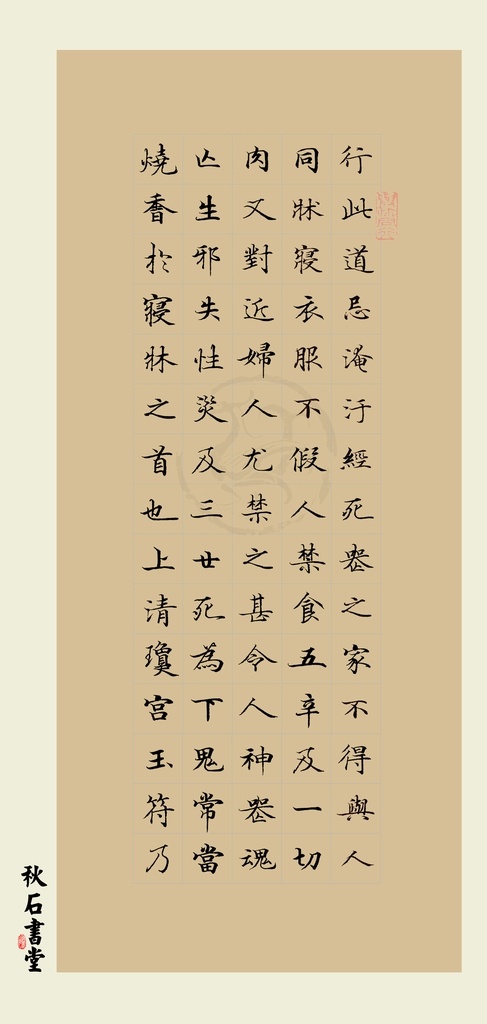 行此道忌淹汙經死喪之家不得與人
同牀寢衣服不假人禁食五辛及一切
肉又對近婦人尤禁之甚令人神喪魂
亡生邪失性災及三世死為下鬼常當
燒香於寢牀之首也上清瓊宮玉符乃
秋石書堂